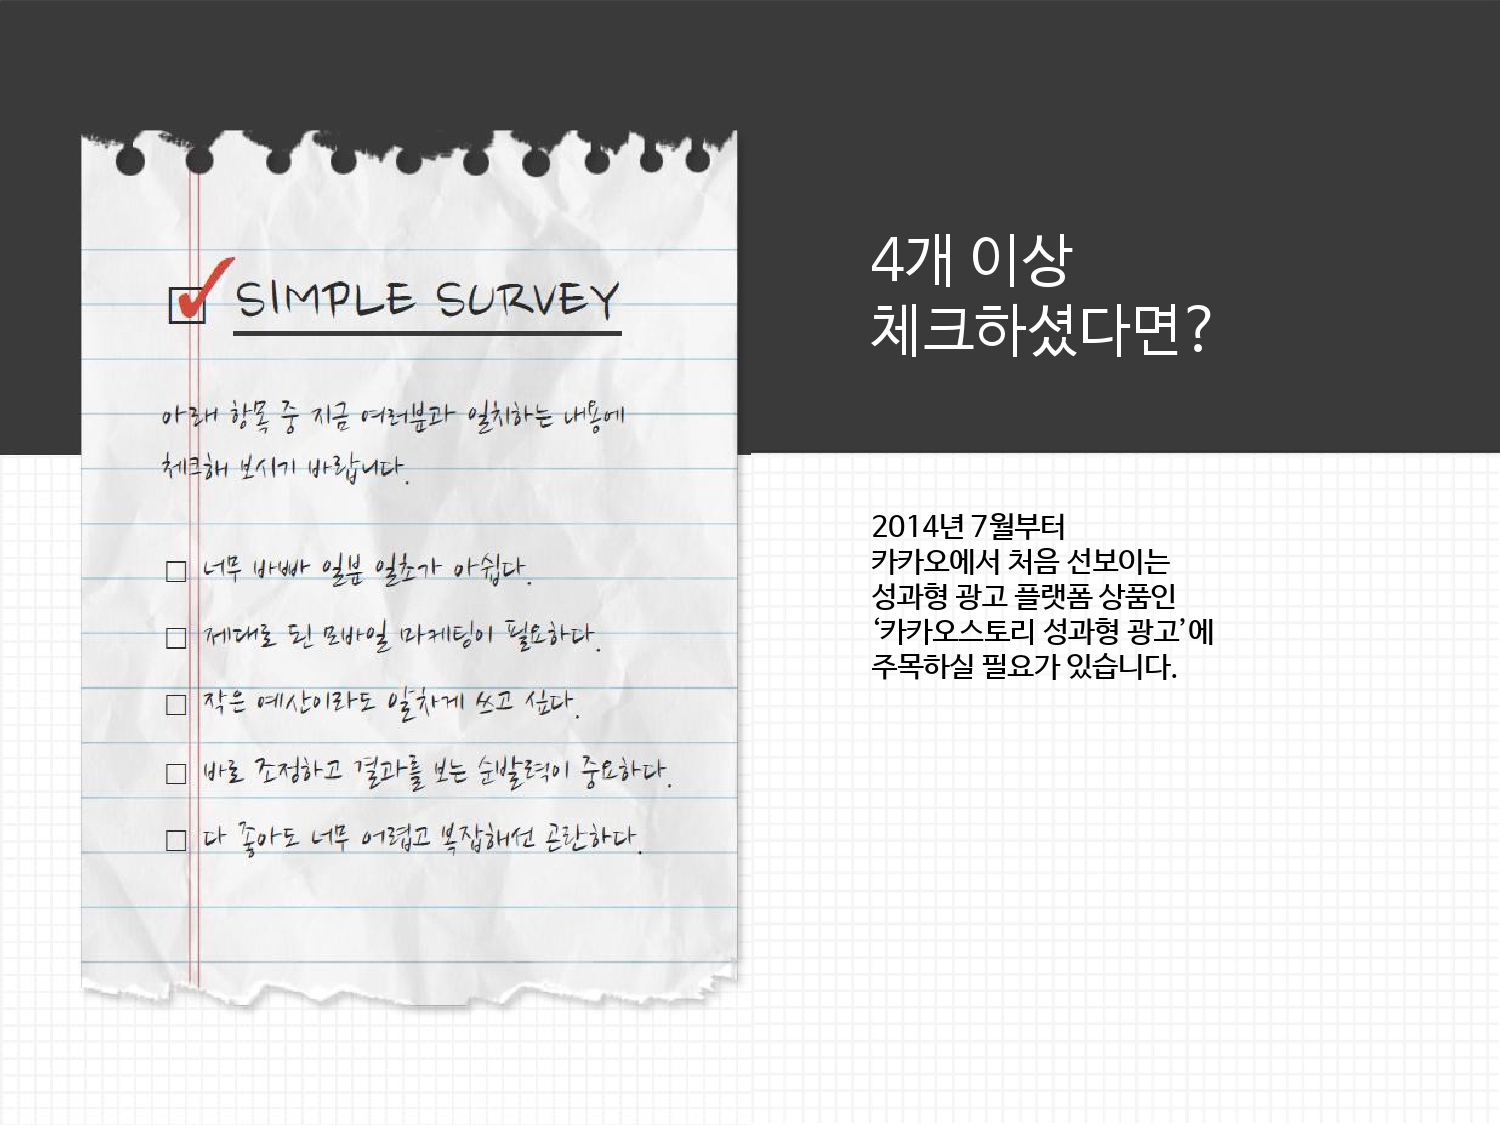 SIMPLE SURVEY
아래 항목 중 지금 여러분과 일치하는 내용에
체크해 보시기 바랍니다.
너무 바빠 일분 일초가 아쉽다.
제대로 된 모바일 마케팅이 필요하다.
작은 예산이라도 알차게 쓰고 싶다.
바로 조정하고 결과를 보는 순발력이 중요하다.
다 좋아도 너무 어렵고 복잡해선 곤란하다.
4개 이상
체크하셨다면?
2014년 7월부터
카카오에서 처음 선보이는
성과형 광고 플랫폼 상품인
‘카카오스토리 성과형 광고’에
주목하실 필요가 있습니다.